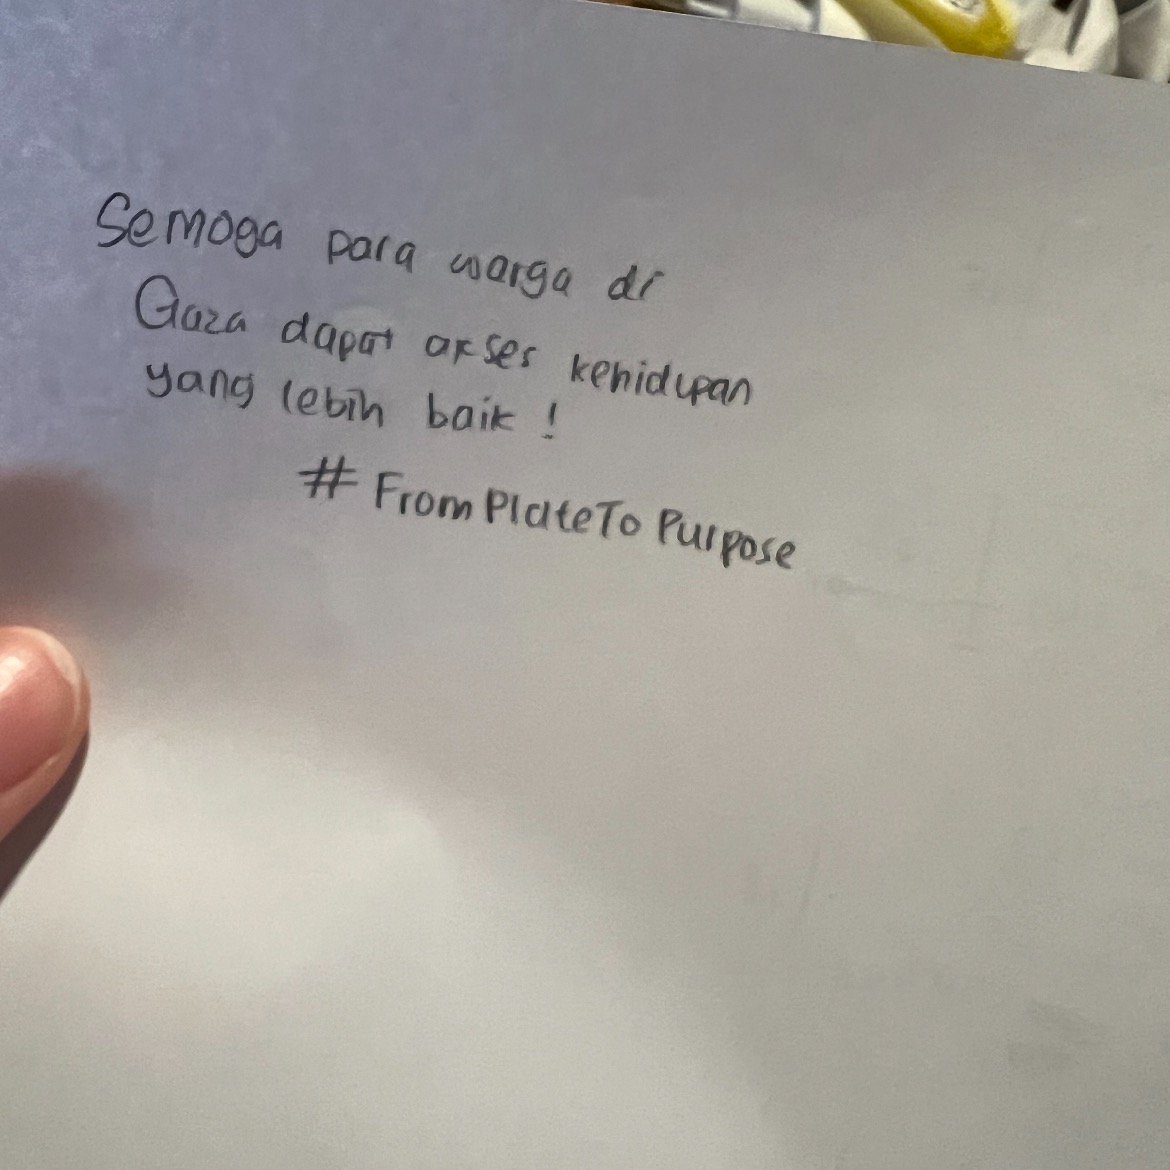 Semoga para warga di
Gaza dapat akses kehidupan
yang lebih baik !
# FromPlateTo Purpose